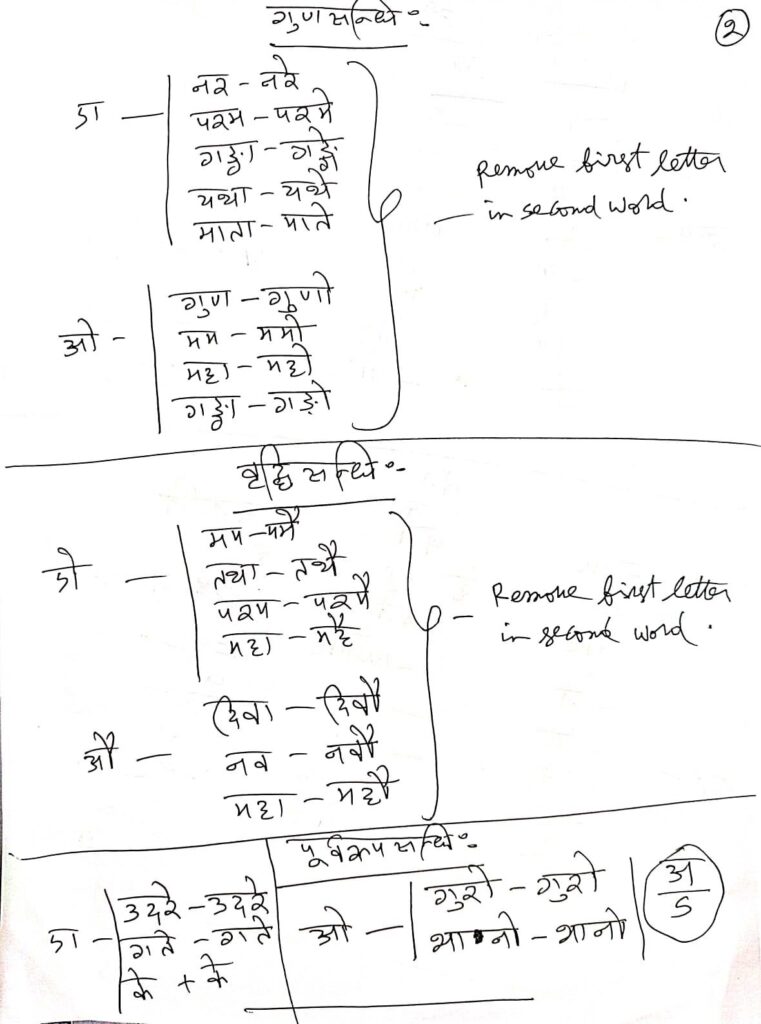 गुण सन्धि :-
2
ए —
नर - नरे
परम - परमे
गङ्गा - गङ्गे
यथा - यथे
माता - माते
— Remove first letter
in second word.
ओ -
गुण - गुणो
मम - ममो
महा - महो
गङ्गा - गङ्गो
वृद्धि सन्धि :-
ऐ —
मम - ममै
तथा - तथै
परम - परमै
महा - महै
— Remove first letter
in second word.
औ —
दिवा - दिवौ
नव - नवौ
महा - महौ
पूर्वरूप सन्धि :-
ए -
उदरे - उदरे
गते - गते
के + के
ओ —
गुरो - गुरो
भानो - भानो
अ
ऽ